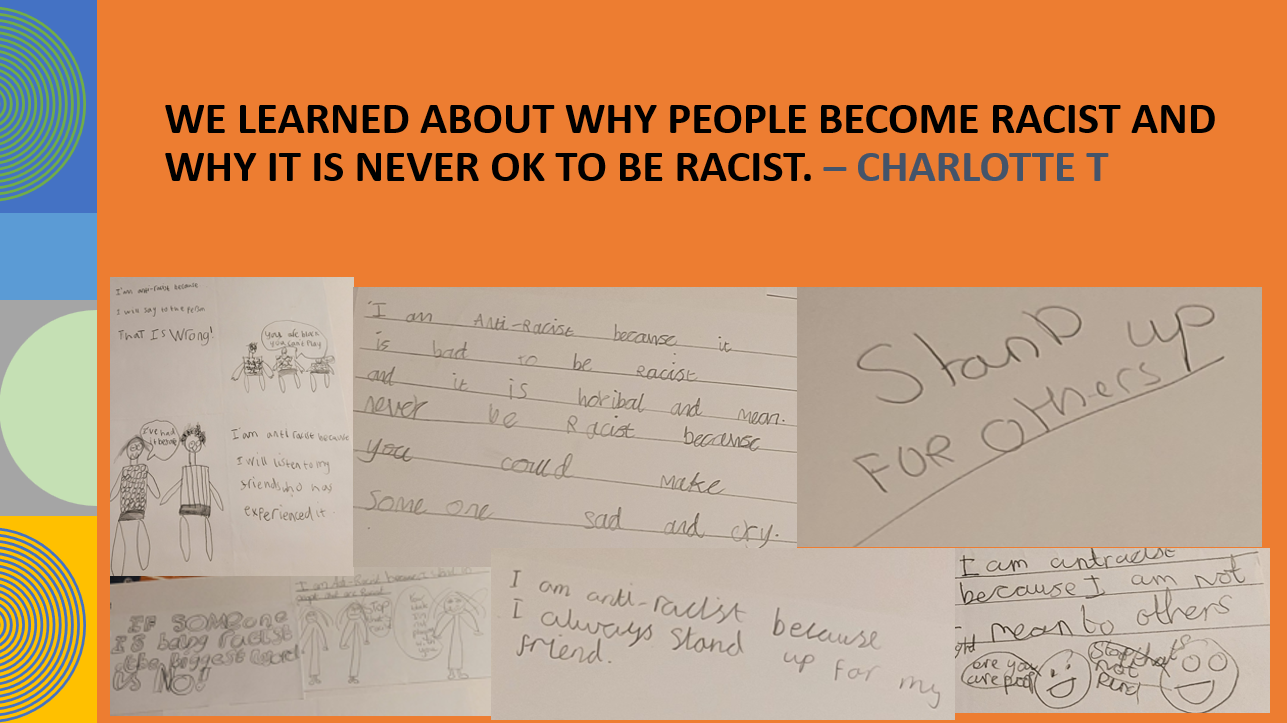 WE LEARNED ABOUT WHY PEOPLE BECOME RACIST AND
WHY IT IS NEVER OK TO BE RACIST. – CHARLOTTE T
I am anti-racist because
I will say to the person
That Is Wrong!
you are black
you can't play
I've had
it before
I am anti racist because
I will listen to my
friends who has
experienced it.
I am Anti-Racist because it
is bad to be racist
and it is horibal and mean.
never be Racist because
you could make
some one sad and cry.
Stand up
FOR others
IF SOMEone
IS being racist
the biggest word
is NO!!
STOP
I am anti-racist because
I always stand up for my
friend.
I am antracist
because I am not
mean to others
are you
Stop that
not